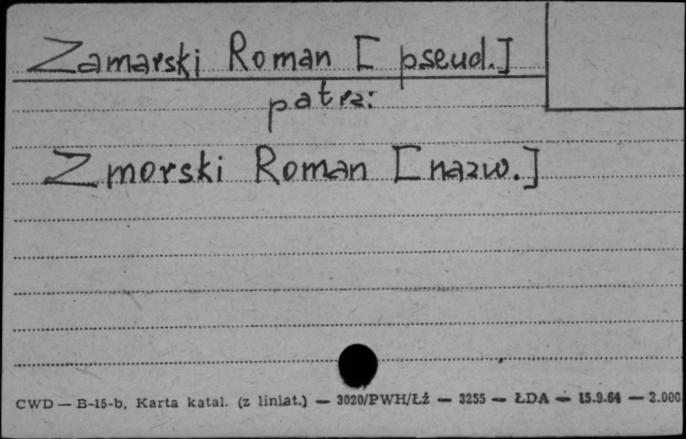 Zamarski Roman [pseud.]
patrz:
Zmorski Roman [nazw.]
CWD — B-15-b, Karta katal. (z liniat.) — 3020/PWH/ŁŻ — 3255 — ŁDA — 15.9.64 — 2.000